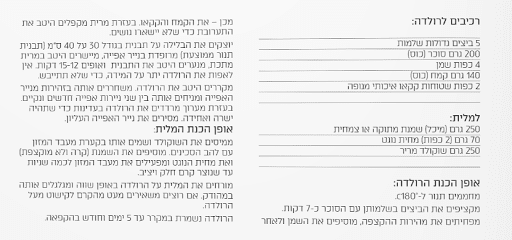 רכיבים לרולדה:
5 ביצים גדולות שלמות
200 גרם סוכר (כוס)
4 כפות שמן
140 גרם קמח (כוס)
2 כפות שטוחות קקאו איכותי מנופה
למלית:
250 גרם (מיכל) שמנת מתוקה או צמחית
70 גרם (2 כפות) מחית נוגט
250 גרם שוקולד מריר
אופן הכנת הרולדה:
מחממים תנור ל-180°c.
מקציפים את הביצים בשלמותן עם הסוכר כ-7 דקות.
מפחיתים את מהירות ההקצפה, מוסיפים את השמן ולאחר
מכן – את הקמח והקקאו. בעזרת מרית מקפלים היטב את
התערובת כדי שלא יישארו גושים.
יוצקים את הבלילה על תבנית בגודל 30 על 40 ס"מ (תבנית
תנור ממוצעת) מרופדת בנייר אפייה, מיישרים היטב במרית
מתכת, מנערים היטב את התבנית ואופים 12-15 דקות. אין
לאפות את הרולדה יתר על המידה, כדי שלא תתייבש.
מקררים היטב את הרולדה. משחררים אותה בזהירות מנייר
האפייה ומניחים אותה בין שני ניירות אפייה חדשים ונקיים.
בעזרת מערוך מרדדים את הרולדה בעדינות כדי שתהיה
ישרה ואחידה. מסירים את נייר האפייה העליון.
אופן הכנת המלית:
ממיסים את השוקולד ושמים אותו בקערת מעבד המזון
עם להב הסכינים. מוסיפים את השמנת (קרה ולא מוקצפת)
ואת מחית הנוגט ומפעילים את מעבד המזון לכמה שניות
עד שנוצר קרם חלק ויציב.
מורחים את המלית על הרולדה באופן שווה ומגלגלים אותה
במהודק. אם רוצים משאירים מעט מהקרם לקישוט מעל
הרולדה.
הרולדה נשמרת במקרר עד 5 ימים וחודש בהקפאה.